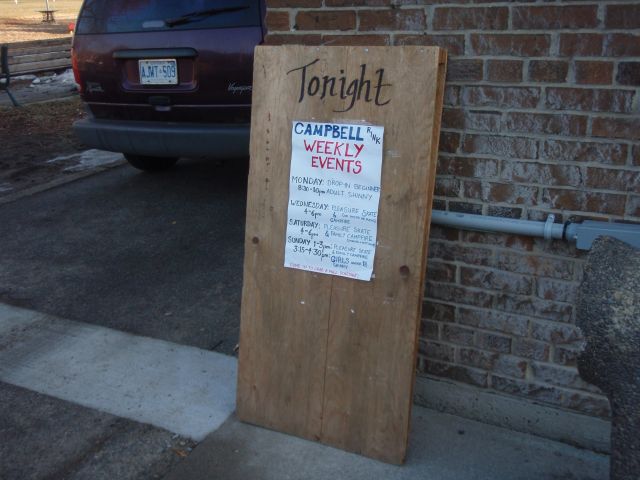 AJWT·509
Voyager
Tonight
CAMPBELL RINK
WEEKLY
EVENTS
MONDAY: DROP-IN BEGINNER
8:30-10pm ADULT SHINNY
WEDNESDAY: PLEASURE SKATE
4-6pm &
CAMPFIRE
SATURDAY: PLEASURE SKATE
4-6pm & FAMILY CAMPFIRE
SUNDAY 1-3pm: PLEASURE
SKATE & FAMILY CAMPFIRE
3:15-4:30pm: GIRLS
SHINNY